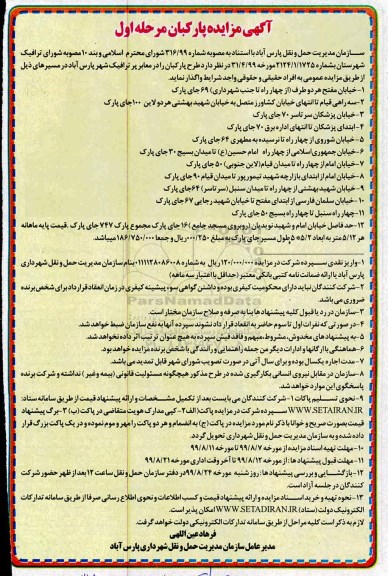 آگهی مزایده پارکبان مرحله اول
سازمان مدیریت حمل و نقل پارس آباد با استناد به مصوبه شماره ۳۱۶/۹۹ شورای محترم اسلامی و بند ۱۰ مصوبه شورای ترافیک
شهرستان بشماره ۲۱۲۴/۱/۱۷۲۵ مورخه ۳۱/۴/۹۹ در نظر دارد طرح پارکبان را در معابر پر ترافیک شهر پارس آباد در مسیرهای ذیل
از طریق مزایده عمومی به افراد حقیقی و حقوقی واجد شرایط واگذار نماید.
۱-خیابان مفتح هر دو طرف (از چهار راه تا جنب شهرداری) ۶۹ جای پارک
۲-سه راهی قیام تا انتهای خیابان کشاورز متصل به خیابان شهید بهشتی هر دو لاین ۱۰۰ جای پارک
۳-خیابان پزشکان سر تاسر ۷۰ جای پارک
۴-ابتدای پزشکان تا انتهای اداره برق ۷۰ جای پارک
۵-خیابان شوروی از چهار راه تا نرسیده به مطهری ۶۴ جای پارک
۶-خیابان جمهوری اسلامی از چهار راه امام حسین(ع) تا میدان بسیج ۳۰ جای پارک
۷-خیابان امام از چهار راه تا میدان قیام(لاین جنوبی) ۵۰ جای پارک
۸-خیابان امام از ابتدای بازارچه شهید تیمورپور تا میدان قیام ۹۰ جای پارک
۹-خیابان شهید بهشتی از چهار راه تا میدان سنبل (سر تاسر) ۶۴ جای پارک
۱۰-خیابان سلمان فارسی از ابتدای مفتح تا خیابان شهید رجایی ۶۷ جای پارک
۱۱-چهار راه سنبل تا چهار راه بسیج ۵۰ جای پارک
۱۲-حد فاصل خیابان امام و شهید نویدیان (روبروی مسجد جامع) ۱۶ جای پارک مجموع پارک ۷۴۷ جای پارک .قیمت پایه ماهانه
هر ۱۲/۵ متر به ابعاد ۲/۵*۵ طول مسیر جای پارک به مبلغ ۲۵۰/۰۰۰ ریال و جمعا ۱۸۶/۷۵۰/۰۰۰ میباشد.
۱-واریز نقدی سپرده شرکت در مزایده ۱۲۰/۰۰۰/۰۰۰ ریال به شماره بنام سازمان مدیریت حمل و نقل شهرداری
پارس آباد یا ارائه ضمانت نامه کتبی بانکی معتبر (حداقل با اعتبار سه ماهه)
۲-شرکت کنندگان نباید دارای محکومیت کیفری بوده و داشتن گواهی سوء پیشینه کیفری در زمان انعقاد قرارداد برای شخص برنده
ضروری می باشد.
۳-سازمان در رد یا قبول کلیه پیشنهاد ها بنا به صرفه و صلاح سازمان مختار است.
۴-در صورتی که نفرات اول تا سوم حاضر به انعقاد قرارداد نشوند سپرده آنها به نفع سازمان ضبط خواهد شد.
۵-به پیشنهاد های مخدوش، مشروط، مبهم و فاقد فیش سپرده به هیچ عنوان ترتیب اثر داده نخواهد شد.
۶-هماهنگی با ارگانها و ادارات دیگر من جمله راهنمایی و رانندگی با شخص برنده مزایده خواهد بود.
۷-مدت اجاره یکسال بوده و برای سال آتی در صورت تصویب شورای شهر قابل تمدید می باشد.
۸-سازمان در مقابل نیروی انسانی بکارگیری شده در طرح مذکور هیچگونه مسئولیت قانونی (بیمه و غیر) نداشته و شرکت برنده
پاسخگوی این موارد خواهد شد.
۹-نحوی تسلیم پاکات ۱-شرکت کنندگان می بایست بعد از تکمیل مشخصات و ارائه پیشنهاد قیمت از طریق سامانه ستاد:
WWW.SETAIRAN.IR سپرده شرکت در مزایده پاکت: (الف) ۲-کپی مدارک هویت متقاضی در پاکت (ب) ۳-برگ پیشنهاد
قیمت بصورت صریح و خوانا با ذکر نام مورد مزایده در پاکت (ج) به انضمام و هر دو پاکت را مهر و موم نموده و در یک پاکت بزرگ قرار
داده شده و به سازمان مدیریت حمل و نقل شهرداری تحویل گردد.
۱۰-مهلت تهیه اسناد مزایده از مورخه ۹۹/۸/۷ تا مورخه ۹۹/۸/۱۱
۱۱-مهلت قبول پیشنهاد ها : از مورخه ۹۹/۸/۱۲ تا آخر وقت اداری مورخه ۹۹/۸/۲۱
۱۲-بازگشایی و بررسی پیشنهاد ها : روز شنبه مورخه ۹۹/۸/۲۴ در دفتر سازمان حمل و نقل ساعت ۱۲ بعد از ظهر حضور شرکت
کنندگان در جلسه آزاد است.
۱۳-نحوه تهیه و خرید اسناد مزایده و ارائه پیشنهاد قیمت و کسب اطلاعات و نحوی اطلاع رسانی صرفا از طریق سامانه تدارکات
الکترونیک دولت (ستاد) WWW.SETADIRAN.IR امکان پذیر است.
لازم به ذکر است کلیه مراحل از طریق سامانه تدارکات الکترونیکی دولت خواهد گرفت.
فرهاد عین اللهی
مدیر عامل سازمان مدیریت حمل و نقل شهرداری پارس آباد
ParsNamadData